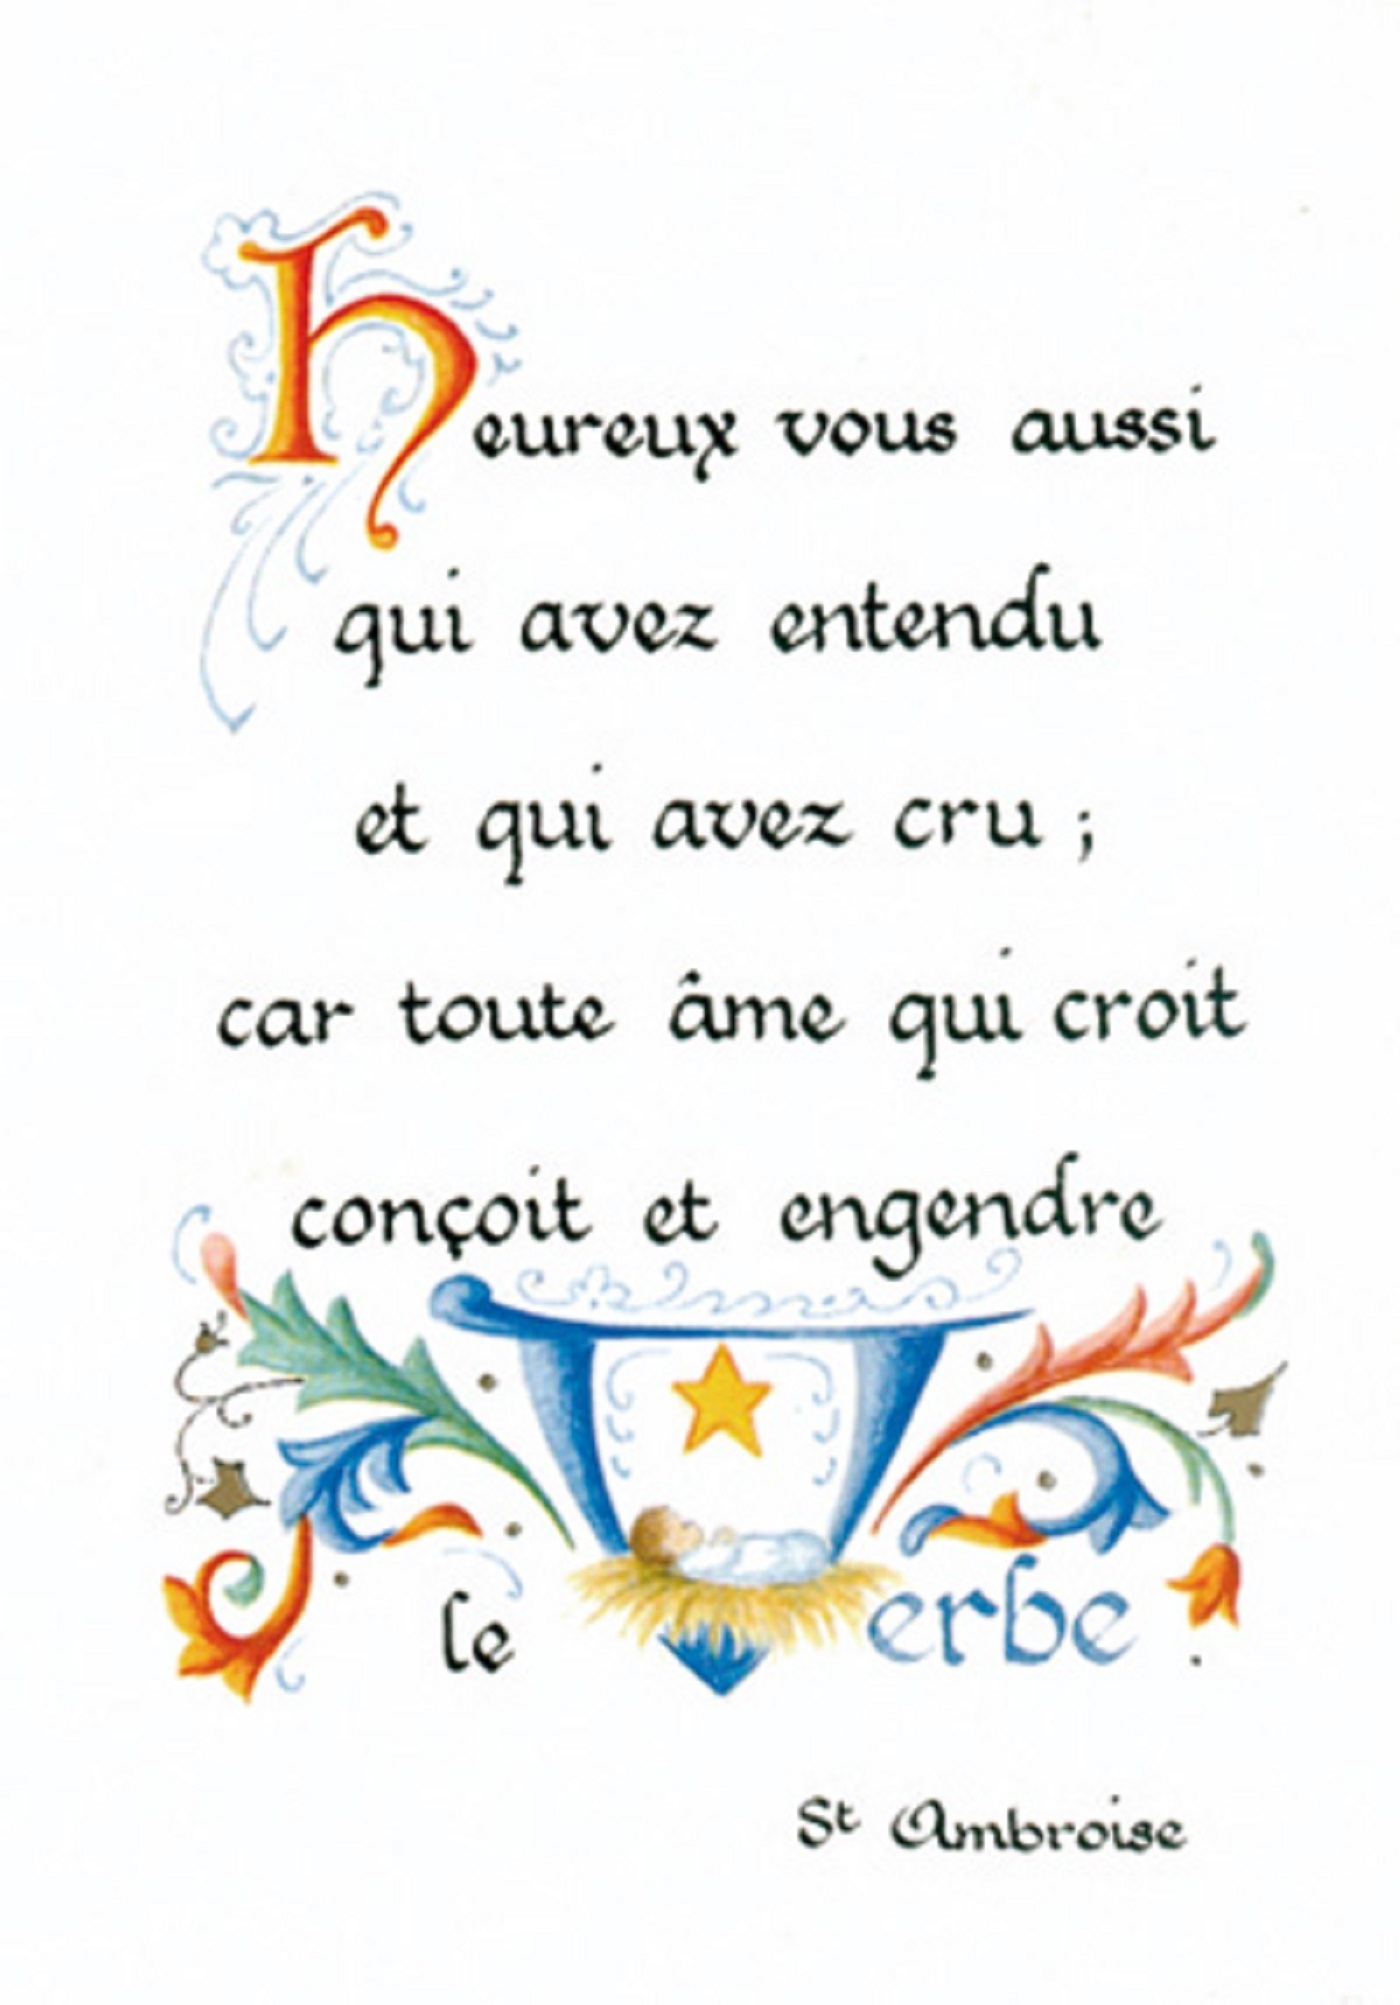 heureux vous aussi
qui avez entendu
et qui avez cru ;
car toute âme qui croit
conçoit et engendre
le Verbe .
St Ambroise